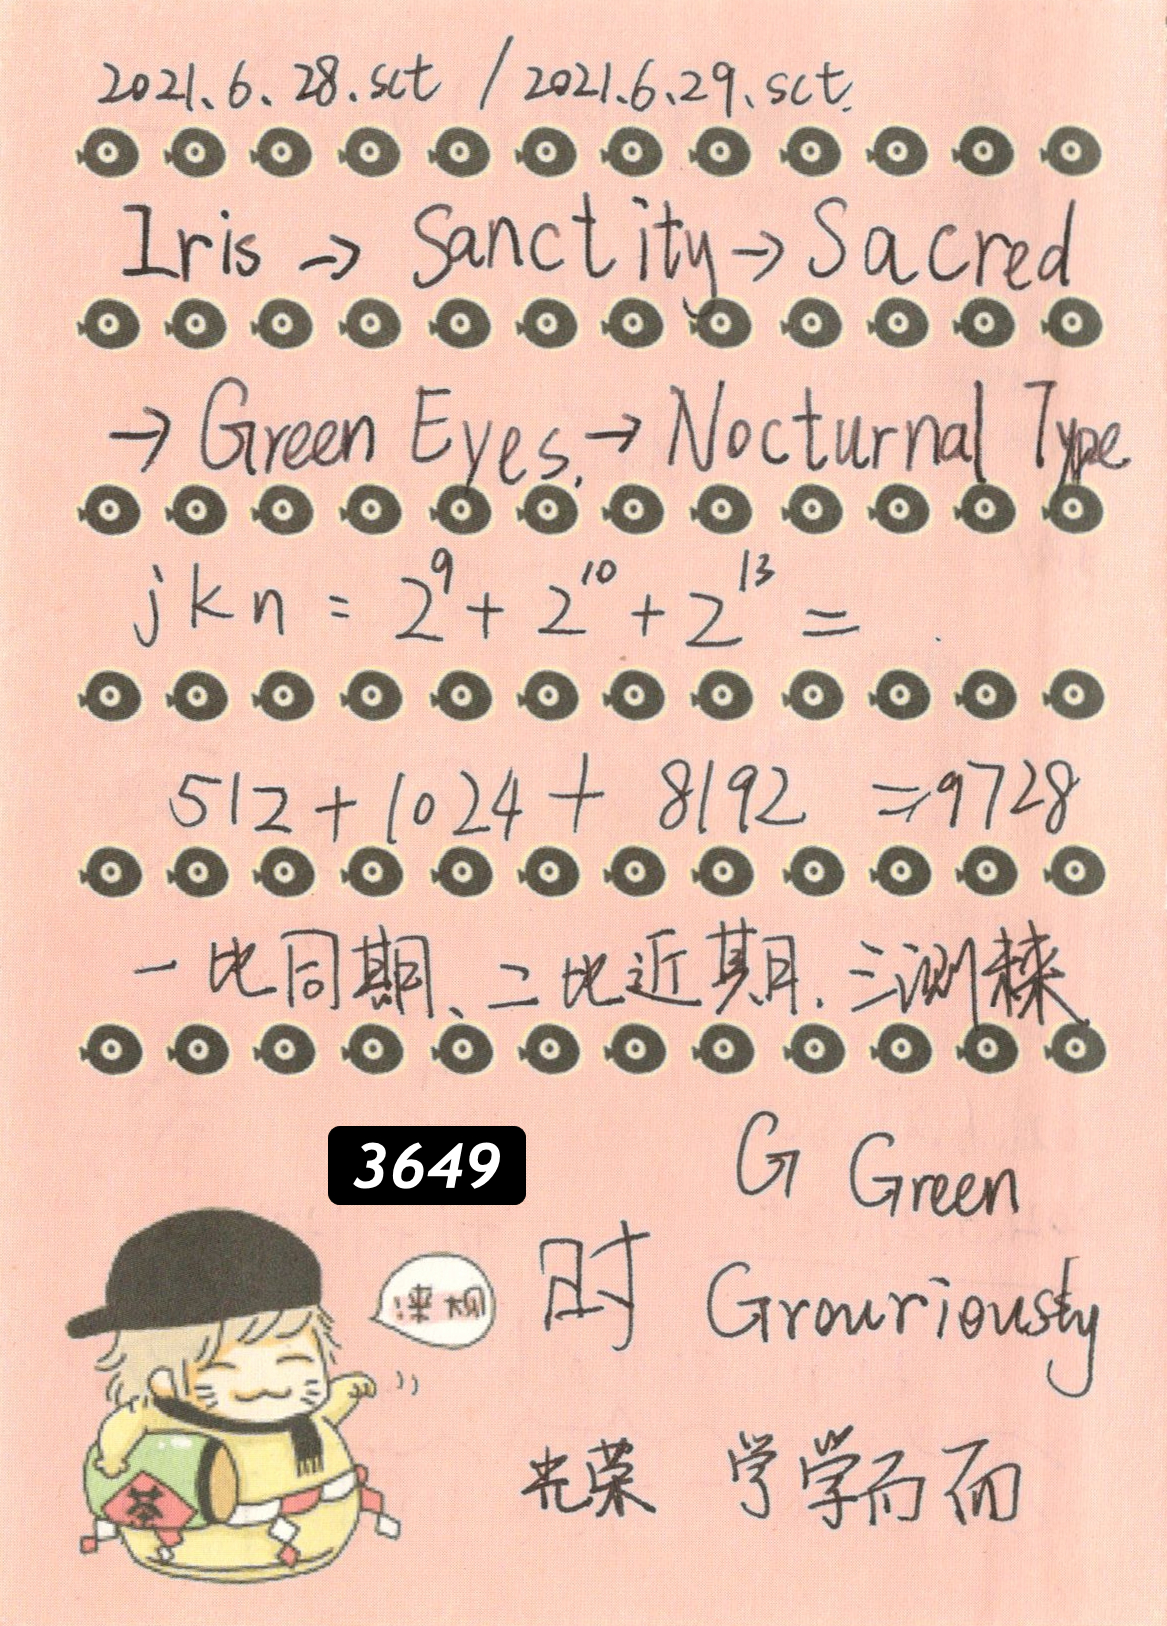 2021.6.28.sct / 2021.6.29.sct.
Iris → Sanctity → Sacred
→ Green Eyes. → Nocturnal Type
jkn = 2⁹ + 2¹⁰ + 2¹³ =
512 + 1024 + 8192 = 9728
一比同期、二比近期. 三测
3649
G Green
时 Grouriously
光荣 学学而而
茶